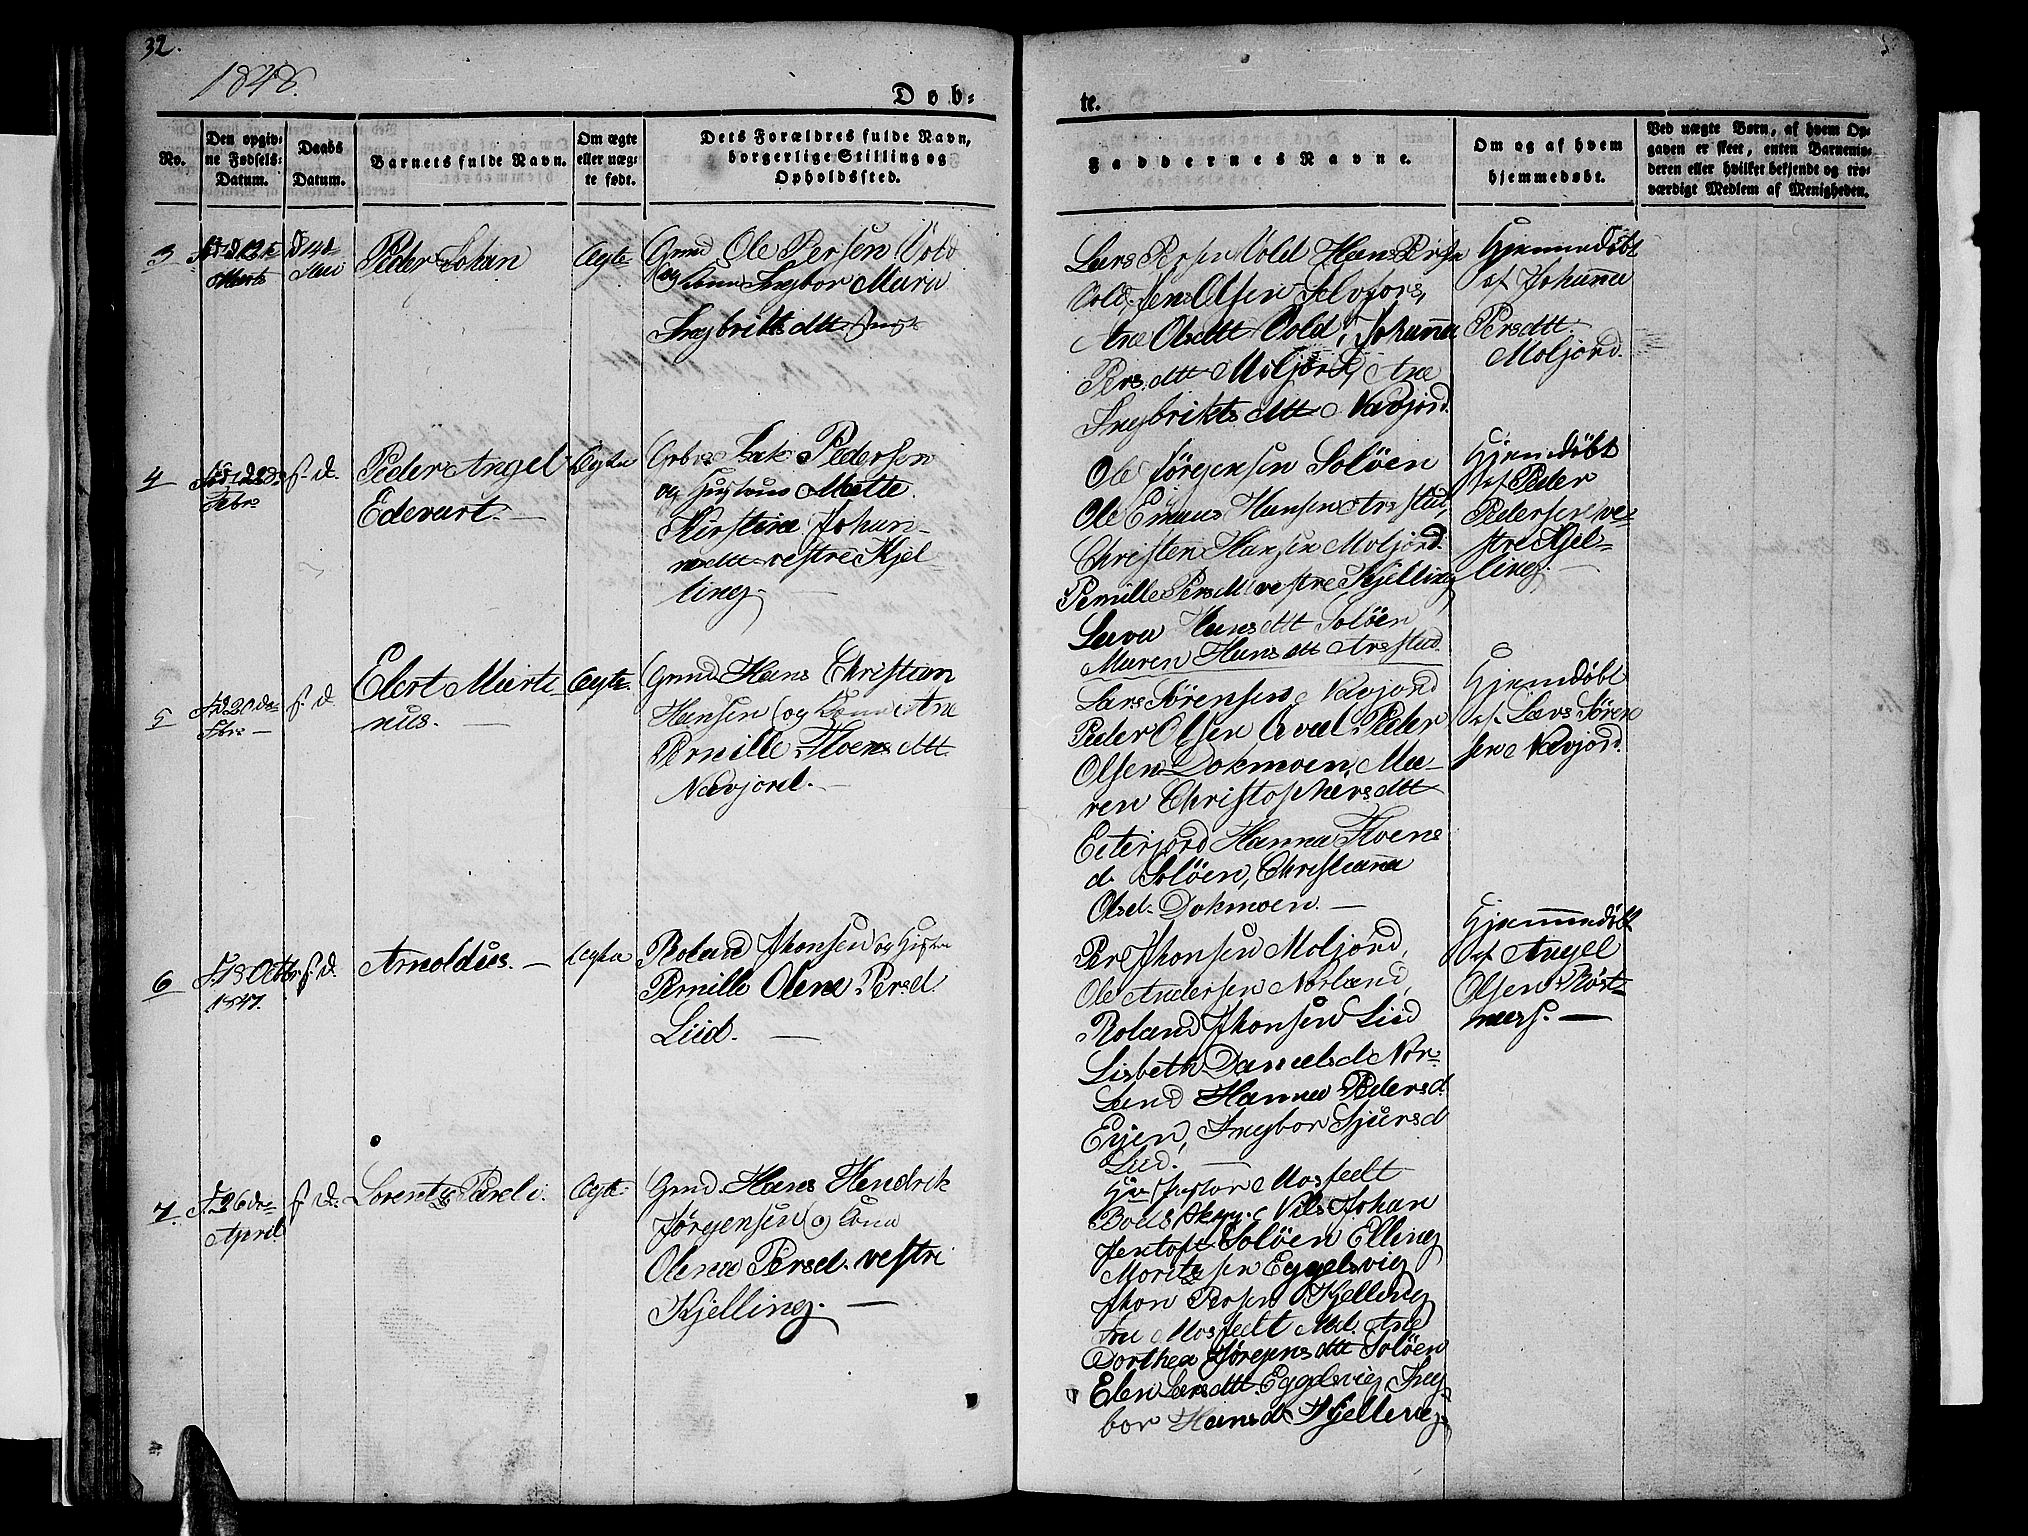 32.
1848.
Døb-
te.
No.
Den opgiv-
ne Fødsels-
Datum.
Daabs
Datum.
Barnets fulde Navn.
Om ægte
eller uæg-
te født.
Dets Forældres fulde Navn,
borgerlige Stilling og
Opholdssted.
Faddernes Navne.
Om og af hvem
hjemmedøbt.
Ved uægte Børn, af hvem Op-
gaven er skeet, enten Barnemo-
deren eller hvilket bekjendt og tro-
værdigt Medlem af Menigheden.
3
Marts
Mai
Peder Johan
Ægte
Gmd Ole Persen Vold
og Kone Ingbor Maria
Ingbrikts dtt
Lars Persen Vold Hans Persen
Vold, Jens Olsen Selvfors,
Ane Olsdtt Vold, Johanna
Persdtt Moljord, Ane
Ingbrikts dtt Navjord.
Hjemmedøbt
af Johanna
Persdtt
Moljord.
4
Febr
s. d.
Peder Angel
Edevart.
Ægte
Isak Pedersen
og Hustrue Mette
Kirstine Johan-
nesdtt vestre Kjel-
ling.
Ole Jørgensen Soløen
Ole Emaus Hansen Arstad,
Christen Hansen Moljord.
Pernille Persdtt vestre Kjelling
Lava Hansdtt Soløen
Maren Hansdtt Arstad.
Hjemdøbt
af Peder
Pedersen ve-
stre Kjel-
ling.
5
F. d 20de
Fbr
s. d
Elert Marti-
nus.
Ægte.
Gmd. Hans Christian
Hansen og Kone Ane
Pernille Floens dtt
Navjord.
Lars Sørensen Navjord
Peder Olsen Qval Peder
Olsen Dokmoen, Ma-
ren Christophersdtt
Eiterjord Hanna Floens
d. Soløen, Christianna
Olsd. Dokmoen.
Hjemdøbt
af Lars Søren
sen Navjord.
6
F. 13 Octbr
1847.
s. d.
Arnoldus.
Ægte
Roland Jhonsen og Hustru
Pernille Olena Persd
Liid.
Per Jhonsen Moljord,
Ole Andersen Norland,
Roland Jhonsen Liid
Lisbeth Danielsd Nor-
land Hanna Pedersd.
Eyen, Ingbor Sjursd
Liid.
Hjemmedøbt
af Angel
Olsen Røst-
næs.
7.
F. 26de
April.
s. d.
Lorents Pareli.
Ægte
Gmd. Hans Hendrik
Jørgensen og Kone
Olena Persd. vestre
Kjelling.
Hr Pastor Mosfeldt
Nils Johan
Jentoft Soløen Elling
Moritzsen Eggelsvig
Jhon Persen Kjelling
Fru Mosfeldt Md. Ane
Dorthea Jørgensdtt Soløen
Elen Larsdtt. Eggelsvig Ing-
bor Hansd. Kjelling.